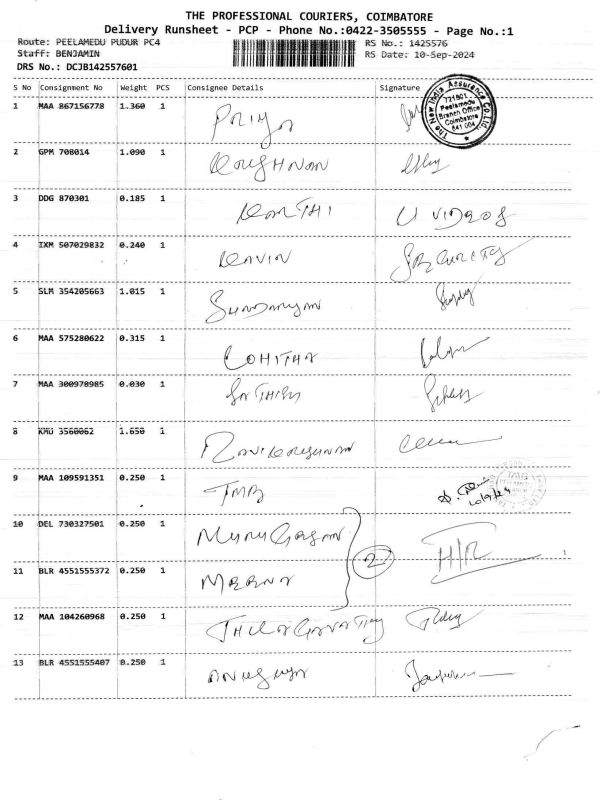 THE PROFESSIONAL COURIERS, COIMBATORE
Delivery Runsheet - PCP - Phone No.:0422-3505555 - Page No.:1
Route: PEELAMEDU PUDUR PC4 RS No.: 1425576
Staff: BENJAMIN RS Date: 10-Sep-2024
DRS No.: DCJB142557601
S No Consignment No Weight PCS Consignee Details Signature
1 MAA 867156778 1.360 1 PRIYA
The New India Assurance Co. Ltd. 721601 Peelamedu Branch Office Coimbatore 641 004
2 GPM 708014 1.090 1
3 DDG 870301 0.185 1 KARTHI U VIDEOS
4 IXM 507029832 0.240 1 KAVIN SECURITY
5 SLM 354205663 1.015 1
6 MAA 575280622 0.315 1 LOHITHA
7 MAA 300978985 0.030 1 SATHISH
8 KMU 3560062 1.650 1
9 MAA 109591351 0.250 1 TMB 10/9/24
10 DEL 730327501 0.250 1 MURUGESAN
2 H/R
11 BLR 4551555372 0.250 1 MEENA
12 MAA 104260968 0.250 1
13 BLR 4551555407 0.250 1